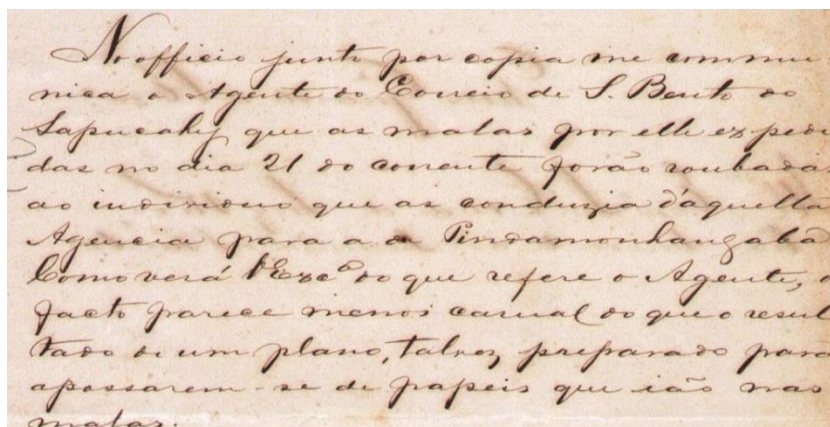 No officio junto por copia me commu-
nica o Agente do Correio de S. Bento do
Sapucahy que as malas por elle expedi
das no dia 21 do corrente forão roubadas
ao individuo que as conduzia d'aquella
Agencia para a de Pindamonhangaba
Como verá V Exc.ª do que refere o Agente, o
facto parece menos casual do que o resul
tado de um plano, talvez, preparado para
apossarem-se de papeis que ião nas
malas.